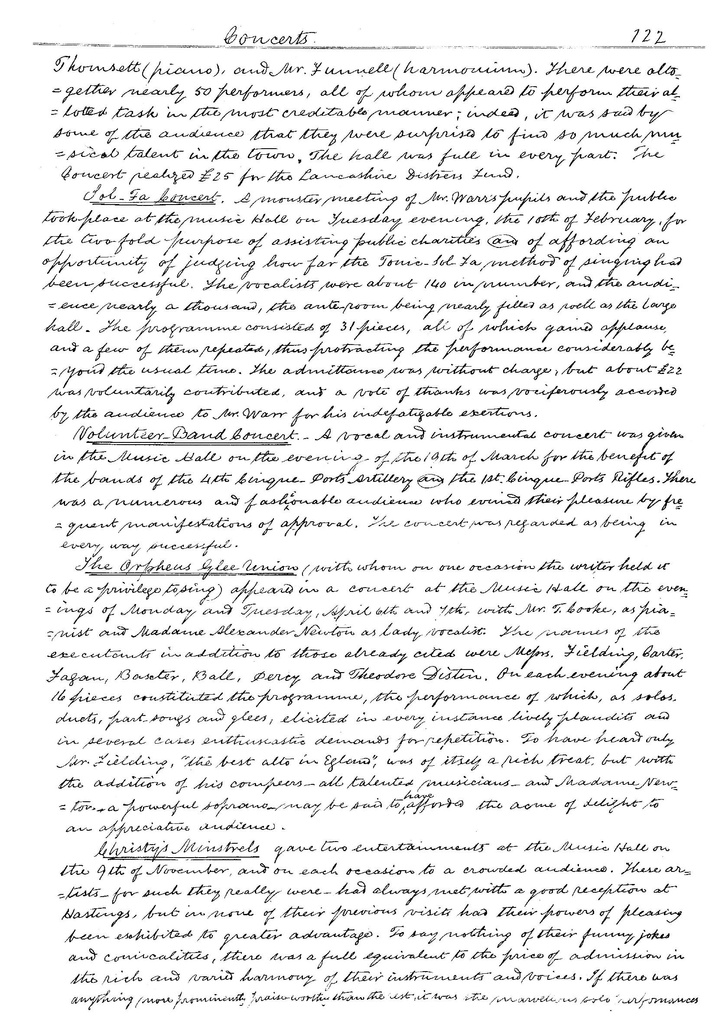 Concerts. 122
Thomsett (piano), and Mr. Funnell (harmonium). There were alto=
=gether nearly 50 performers, all of whom appeared to perform their al=
=lotted task in the most creditable manner; indeed, it was said by
some of the audience that they were surprised to find so much mu=
=sical talent in the town. The hall was full in every part. The
Concert realized £25 for the Lancashire Distress Fund.
Sol-Fa Concert. A monster meeting of Mr. Warr's pupils and the public
took place at the Music Hall on Tuesday evening, the 10th of February, for
the two fold purpose of assisting public charities and of affording an
opportunity of judging how far the Tonic-Sol-Fa method of singing had
been successful. The vocalists were about 140 in number, and the audi=
=ence nearly a thousand, the ante-room being nearly filled as well as the large
hall. The programme consisted of 31 pieces, all of which gained applause,
and a few of them repeated, thus protracting the performance considerably be=
=yond the usual time. The admittance was without charge, but about £22
was voluntarily contributed, and a vote of thanks was vociferously accorded
by the audience to Mr. Warr for his indefatigable exertions.
Volunteer-Band Concert. - A vocal and instrumental concert was given
in the Music Hall on the evening of the 19th of March for the benefit of
the bands of the 4th Cinque-Ports Artillery and the 1st Cinque-Ports Rifles. There
was a numerous and fashionable audience who evined their pleasure by fre=
=quent manifestations of approval. The concert was regarded as being in
every way successful.
The Orpheus Glee Union (with whom on one occasion the writer held it
to be a privilege to sing) appeared in a concert at the Music Hall on the even=
=ings of Monday and Tuesday, April 6th and 7th, with Mr. T. Cooke, as pia=
=nist and Madame Alexander Newton as lady vocalist. The names of the
executants in addition to those already cited were Messrs. Fielding, Carter,
Fagan, Baxter, Ball, Percy and Theodore Distin. On each evening about
16 pieces constituted the programme, the performance of which, as solos,
duets, part songs and glees, elicited in every instance lively plaudits and
in several cases enthusiastic demands for repetition. To have heard only
Mr. Fielding, "the best alto in Egland", was of itself a rich treat, but with
the addition of his compeers - all talented musicians - and Madame New=
=ton - a powerful soprano - may be said to have afforded the acme of delight to
an appreciative audience.
Christy's Minstrels gave two entertainments at the Music Hall on
the 9th of November, and on each occasion to a crowded audience. These ar=
=tists - for such they really were - had always met with a good reception at
Hastings, but in none of their previous visits had their powers of pleasing
been exhibited to greater advantage. To say nothing of their funny jokes
and comicalities, there was a full equivalent to the price of admission in
the rich and varied harmony of their instruments and voices. If there was
anything more prominently praiseworthy than the rest, it was the marvellous solo performances